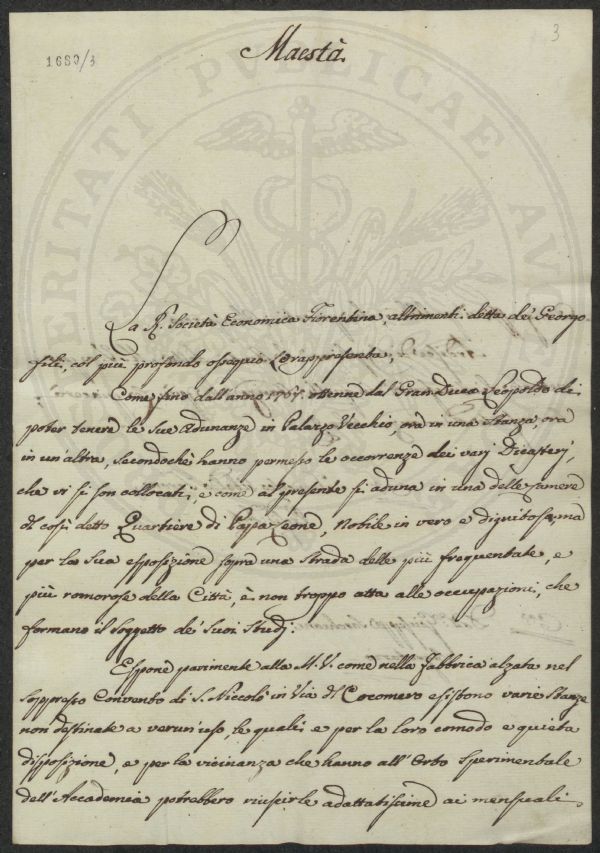 3
1689/3
Maestà.
La R. Società Economica Fiorentina, altrimenti detta de' Georgo-
fili, col più profondo ossequio Le rappresenta,
Come fino dall'anno 1767. ottenne dal Gran Duca Leopoldo di
poter tenere le Sue Adunanze in Palazzo Vecchio, ora in una Stanza, ora
in un'altra, secondochè hanno permesso le occorrenze dei varj Dicasterj
che vi si son collocati; e come al presente si aduna in una delle Camere
del così detto Quartiere di Papa Leone, Nobile in vero e dignitosa; ma
per la Sua esposizione sopra una Strada delle più frequentate, e
più romorose della Città, è non troppo atta alle occupazioni, che
formano il Soggetto de' Suoi Studj.
Espone parimente alla M. V. come nella Fabbrica alzata nel
soppresso Convento di S. Niccolò in Via del Cocomero esistono varie Stanze
non destinate a verun'uso, le quali e per la loro comoda e quieta
disposizione, e per la vicinanza che hanno all'Orto Sperimentale
dell'Accademia potrebbero riuscirle adattatissime ai mensuali
PUBLICAE